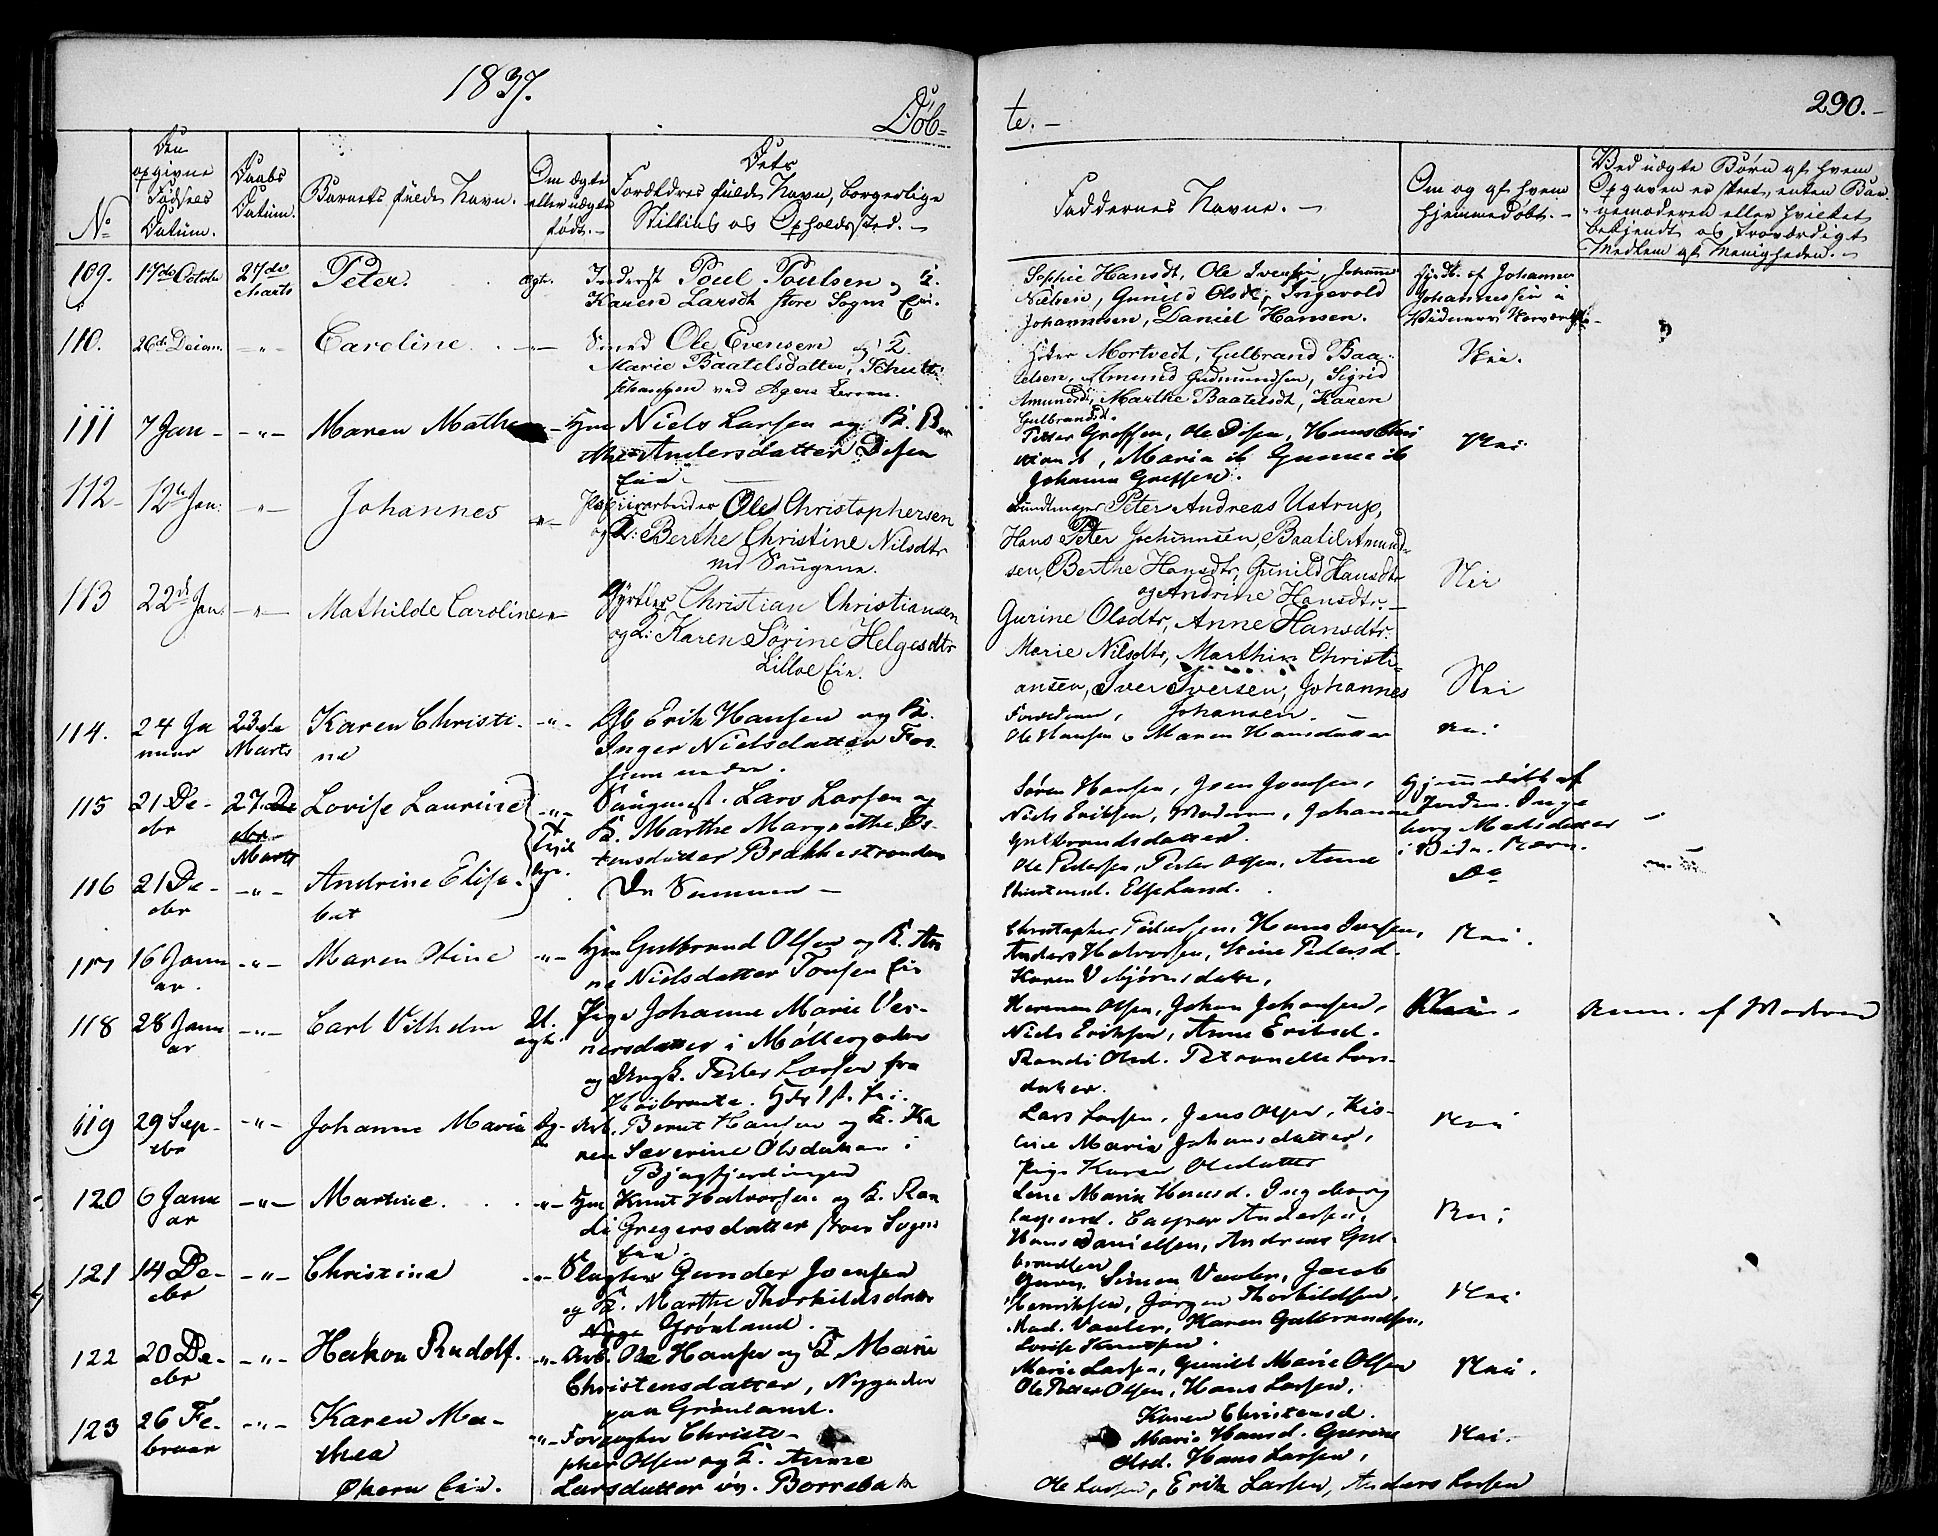 1837.
Døb=
te. -
290. -
No
Den
opgivne
Fødsels
Datum.
Daabs
Datum.
Barnets fulde Navn.
Om ægte
eller uægte
født. -
Dets
Forældres fulde Navn, borgerlige
Stilling og Opholdssted. -
Faddernes Navne. -
Om og af hvem
hjemmedøbt. -
Ved uægte Børn af hvem
Opgaven er skeet, enten Bar-
nemoderen eller hvilket
bekjendt og troværdigt
Medlem af Menigheden. -
109.
17de Octobr
27de
Marts
Peter.
ægte.
Inderst Poul Poulsen og K.
Karen Larsdt store Sogns Eie.
Sophie Hansdt, Ole Ivensen, Johanne
Nielsen, Gunild Olsdt, Ingevold
Johannesen, Daniel Hansen.
Hjdb. af Johannes
Johannessen i
110.
26de Decem.
-"-
Caroline.
Smed Ole Evensen og K.
Marie Baatelsdatter,
ved Agers Kirken.
Mortvedt, Gulbrand Baa-
telsen, Amund Gudmundsen, Sigrid
Amundsdt, Marthe Baatelsdt, Karen
Gulbrandsdt.
Nei.
111
7 Jan -
-"-
Maren Mathea
Hjm Niels Larsen og K. Ber
the Andersdatter Disen
Eie.
Peter Greffen, Ole Disen, Hans Chri
stiansd, Maria ib Gunne ib
Johanne Greffen.
Nei
112 -
12te Jan.
-"-
Johannes
-"-
Ole Christophersen
og K: Berthe Christine Nilsdtr
ved Saugene.
Peter Andreas Ustrup,
Hans Peter Johannsen, Baatil Amund-
sen, Berthe Hansdtr, Gunild Hansdtr
og Andrine Hansdtr. -
Nei
113
22de Jan.
-"-
Mathilde Caroline
-"-
Gjørtler Christian Christiansen
og K: Karen Sørine Helgesdtr
Lilloe Eie.
Gurine Olsdtr, Anne Hansdtr.
Marie Nilsdtr, Marthin Christi-
ansen, Iver Iversen, Johannes
Johansen.
Nei
114.
24 Ja
nuar
23de
Marts
Karen Christi-
ne
-"-
Gb Erik Hansen og K.
Inger Nielsdatter Fos-
sum nedre.
Ole Hansen, Maren Hansdatter
Nei
115
21 De-
cbr
27. De
cbr
Marts
Lovise Laurine
-"-
Tvil
linger.
Saugmest. Lars Larsen og
K. Marthe Margrethe
tensdatter Brækkestranden
Søren Hansen, Joen Jonsen,
Niels Eriksen, Moderen, Johanne
Gulbrandsdatter.
Hjemmedøbt af
Jordm. Inge
borg Matisdatter
116
21 De-
cbr
-"-
Andrine Elisa-
bet
De Samme -
Ole Pedersen, Peder Olsen, Anne
Christensd. Else Lund.
Do
117
16 Janu
ar.
-"-
Maren Oline
-"-
Hjm Gulbrand Olsen og K. An
ne Nielsdatter Tonsen Eie
Christopher Pedersen, Hans Iversen,
Anders Halvorsen, Stine Pedersd.
Karen Vebjørnsdatter,
Nei.
118
28 Janu
ar
-"-
Carl Vilhelm
U.
ægte.
Pige Johanne Marie Ver-
nersdatter i Møllergaden
og Ungk. Peder Larsen fra
Høibraate.
Herman Olsen, Johan Johansen,
Niels Eriksen, Anne Eriksd.
Randi Olsd. Petronelle Lars-
datter.
Nei.
Anm. af Moderen
119
29 Sep-
tbr
-"-
Johanne Maria
Arb. Bernt Hansen og K. Ka
ren Severine Olsdatter i
Bjugfjerdingen
Lars Larsen, Jens Olsen, Kis-
tine Maria Johansdatter,
Pige Karen Olsdatter
Nei
120
6 Janu
ar
-"-
Martine.
-"-
Hjm Knut Halvorsen og K. Ran
di Gregersdatter store Sogns
Eie.
Lene Maria Hansd. Ingeborg
Caspersd. Casper Andersen,
Hans Danielsen, Andreas Gul-
brandsen
Nei
121
14 De-
cbr
-"-
Christine
-"-
Slagter Gunder Joensen
og K. Marthe Thorkildsdatter
Grønland.
Simen Vauler, Jacob
Henriksen, Jørgen Thorkildsen,
Mad. Vauler, Karen Gulbrandsen,
Lovise Knutsen.
Nei
122
20 De-
cbr
-"-
Hakon Rudolf.
-"-
Arb. Ole Hansen og K Marie
Christensdatter, Nygaden
paa Grønland.
Marie Larsen, Gunild Marie Olsen
Ole Peder Olsen, Hans Larsen,
Karen Christensd.
Nei.
123
26 Fe-
bruar
-"-
Karen Ma-
thea
Økern Eie.
-"-
Forpagter Christo-
pher Olsen og K. Anne
Larsdatter øv. Borrebæk
Marie Hansd. Gurine
Olsd. Hans Larsen,
Ole Larsen, Erik Larsen, Anders Larsen
Nei.